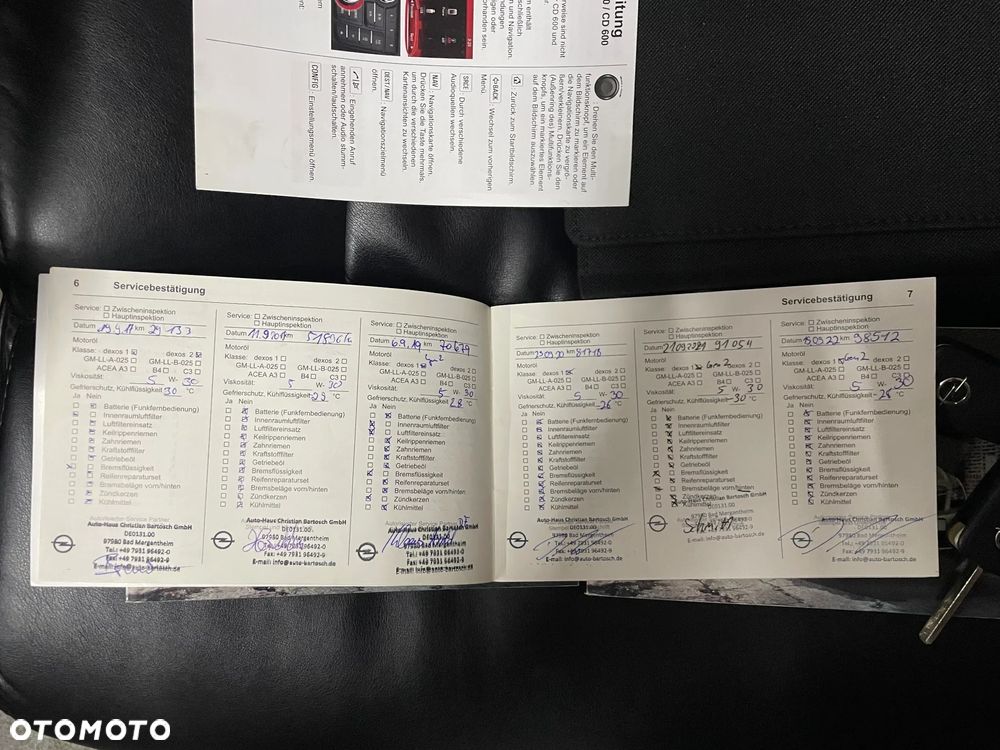 itung
0 / CD 600
erweise sind nicht
CD 600 und
m enthält
schließlich
n und Navigation.
ndungen
eigen oder
vorhanden sein.
Drehen Sie den Multi-
funktionsknopf, um ein Element auf
dem Bildschirm zu markieren oder
die Navigationskarte zu vergrö-
ßern/verkleinern. Drücken Sie den
(Außenring des) Multifunktions-
knopfs, um ein markiertes Element
auf dem Bildschirm auszuwählen.
: Zurück zum Startbildschirm.
BACK : Wechsel zum vorherigen
Menü
SRCE : Durch verschiedene
Audioquellen wechseln.
NAV : Navigationskarte öffnen.
Drücken Sie die Taste mehrmals,
um durch die verschiedenen
Kartenansichten zu wechseln.
DEST/NAV : Navigationszielmenü
öffnen.
: Eingehenden Anruf
annehmen oder Audio stumm-
schalten/lautschalten.
CONFIG : Einstellungsmenü öffnen.
6 Servicebestätigung
Service: Zwischeninspektion
Hauptinspektion
Datum 29 133
Motoröl
Klasse: dexos 1 dexos 2
GM-LL-A-025 GM-LL-B-025
ACEA A3 B4 C3
Viskosität: 5 W- 30
Gefrierschutz, Kühlflüssigkeit 30 °C
Ja Nein
Batterie (Funkfernbedienung)
Innenraumluftfilter
Luftfiltereinsatz
Keilrippenriemen
Zahnriemen
Kraftstofffilter
Getriebeöl
Bremsflüssigkeit
Reifenreparaturset
Bremsbeläge vorn/hinten
Zündkerzen
Kühlmittel
Autorisierter Service Partner
Auto-Haus Christian Bartosch GmbH
DE0131.00
97980 Bad Mergentheim
Tel.: +49 7931 96492-0
Fax: +49 7931 96492-9
E-mail: info@auto-bartosch.de
Service: Zwischeninspektion
Hauptinspektion
Datum km
Motoröl
Klasse: dexos 1 dexos 2
GM-LL-A-025 GM-LL-B-025
ACEA A3 B4 C3
Viskosität: 5 W- 30
Gefrierschutz, Kühlflüssigkeit -29 °C
Ja Nein
Batterie (Funkfernbedienung)
Innenraumluftfilter
Luftfiltereinsatz
Keilrippenriemen
Zahnriemen
Kraftstofffilter
Getriebeöl
Bremsflüssigkeit
Reifenreparaturset
Bremsbeläge vorn/hinten
Zündkerzen
Kühlmittel
Auto-Haus Christian Bartosch GmbH
DE0131.00
97980 Bad Mergentheim
96492-0
Fax: +49 7931 96492-9
E-mail: info@auto-bartosch.de
Service: Zwischeninspektion
Hauptinspektion
Datum 6.9.19 km 70679
Motoröl
Klasse: dexos 1 dexos 2
GM-LL-A-025 GM-LL-B-025
ACEA A3 B4 C3
Viskosität: 5 W- 30
Gefrierschutz, Kühlflüssigkeit -28 °C
Ja Nein
Batterie (Funkfernbedienung)
Innenraumluftfilter
Luftfiltereinsatz
Keilrippenriemen
Zahnriemen
Kraftstofffilter
Getriebeöl
Bremsflüssigkeit
Reifenreparaturset
Bremsbeläge vorn/hinten
Zündkerzen
Kühlmittel
Auto-Haus Christian Bartosch GmbH
DE0131.00
97980 Bad Mergentheim
Fax: +49 7931 96492-9
E-mail: info@auto-bartosch.de
Servicebestätigung 7
Service: Zwischeninspektion
Hauptinspektion
Datum km 81718
Motoröl
Klasse: dexos 1 dexos 2
GM-LL-A-025 GM-LL-B-025
ACEA A3 B4 C3
Viskosität: 5 W- 30
Gefrierschutz, Kühlflüssigkeit -26 °C
Ja Nein
Batterie (Funkfernbedienung)
Innenraumluftfilter
Luftfiltereinsatz
Keilrippenriemen
Zahnriemen
Kraftstofffilter
Getriebeöl
Bremsflüssigkeit
Reifenreparaturset
Bremsbeläge vorn/hinten
Zündkerzen
Kühlmittel
Auto-Haus Christian Bartosch GmbH
DE0131.00
97980 Bad Mergentheim
Tel.: +49 7931 96492-0
Fax: +49 7931 96492-9
E-mail: info@auto-bartosch.de
Service: Zwischeninspektion
Hauptinspektion
Datum 91 054
Motoröl
Klasse: dexos 1 Gen 2 dexos 2
GM-LL-A-025 GM-LL-B-025
ACEA A3 B4 C3
Viskosität: 5 W- 30
Gefrierschutz, Kühlflüssigkeit -30 °C
Ja Nein
Batterie (Funkfernbedienung)
Innenraumluftfilter
Luftfiltereinsatz
Keilrippenriemen
Zahnriemen
Kraftstofffilter
Getriebeöl
Bremsflüssigkeit
Reifenreparaturset
Bremsbeläge vorn/hinten
Zündkerzen
Kühlmittel
Auto-Haus Christian Bartosch GmbH
DE0131.00
97980 Bad Mergentheim
96492-0
Fax: +49 7931 96492-9
E-mail: info@auto-bartosch.de
Service: Zwischeninspektion
Hauptinspektion
Datum km 98512
Motoröl
Klasse: dexos 1 Gen 2 dexos 2
GM-LL-A-025 GM-LL-B-025
ACEA A3 B4 C3
Viskosität: 5 W- 30
Gefrierschutz, Kühlflüssigkeit -26 °C
Ja Nein
Batterie (Funkfernbedienung)
Innenraumluftfilter
Luftfiltereinsatz
Keilrippenriemen
Zahnriemen
Kraftstofffilter
Getriebeöl
Bremsflüssigkeit
Reifenreparaturset
Bremsbeläge vorn/hinten
Zündkerzen
Kühlmittel
Auto-Haus Christian Bartosch GmbH
DE0131.00
97980 Bad Mergentheim
Tel.: +49 7931 96492-0
Fax: +49 7931 96492-9
E-mail: info@auto-bartosch.de
OTOMOTO